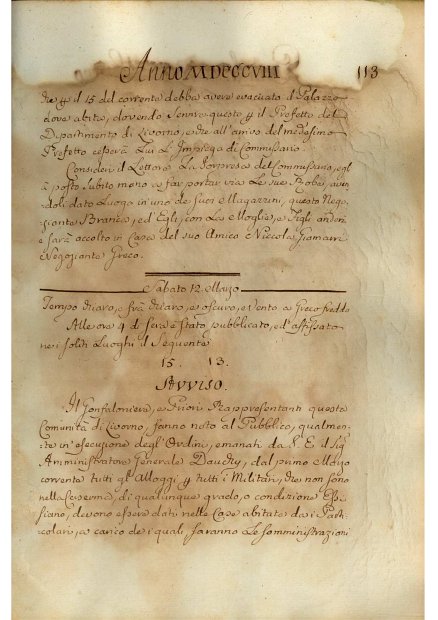 Anno MDCCCVIII 113
che p il 15 del corrente debba avere evacuato il Palazzo
dove abita, dovendo servire questo p il Prefetto del
Departimento di Livorno, e che all'arrivo del medesimo
Prefetto cesserà Lui L'Impiego di Commissario.
Consideri il Lettore La sorpresa del Commissario, egli
si posto subito mano a far portar via Le sue Robe, aven
doli dato Luogo in uno de suoi Magazzini, questo Nego
ziante Branca, ed Egli, con La Moglie, e Figli anderà
e sarà accolto in Casa del suo Amico Niccola Giomarri
Negoziante Greco.
Sabato 12 Maggio
Tempo chiaro, e frà chiaro, e oscuro, e Vento a Greco freddo
Alle ore 4 di sera è stato pubblicato, ed affissato
nei soliti Luoghi il Seguente
15. 13.
Avviso.
Il Gonfaloniere, e Priori Rappresentanti questa
Comunità di Livorno, fanno noto al Pubblico, qualmen
te in esecuzione degl'Ordini, emanati da S. E. il Sig
Amministratore Generale Dauchy, dal primo Maggio
corrente tutti gli Alloggi p tutti i Militari, che non sono
nelle Caserme, di qualunque grado, o condizione Es
siano, devono essere dati nelle Case abitate da i Parti
colari, a carico de i quali saranno Le somministrazioni